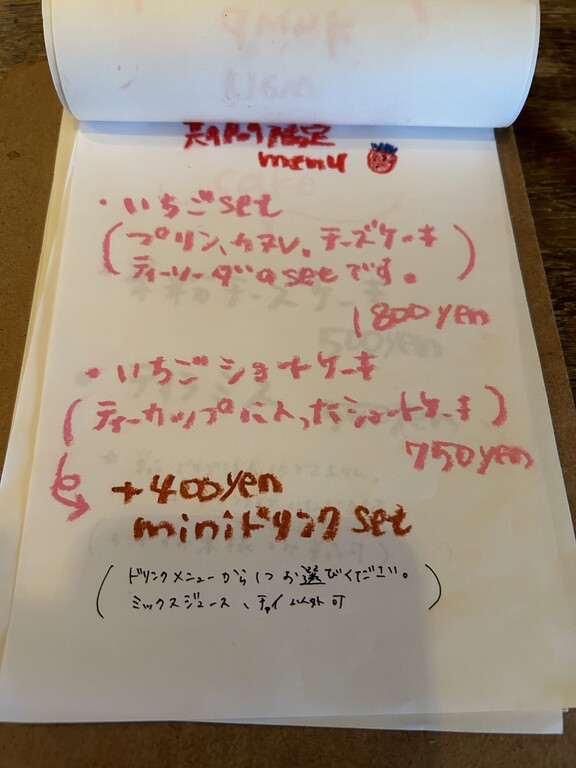 期間限定
menu
・いちごset
(プリン、カヌレ、チーズケーキ
ティーソーダのsetです。)
1800yen
・いちごショートケーキ
(ティーカップに入ったショートケーキ)
750yen
+400yen
miniドリンクset
(ドリンクメニューから1つお選びください。
ミックスジュース、チャイ以外可)